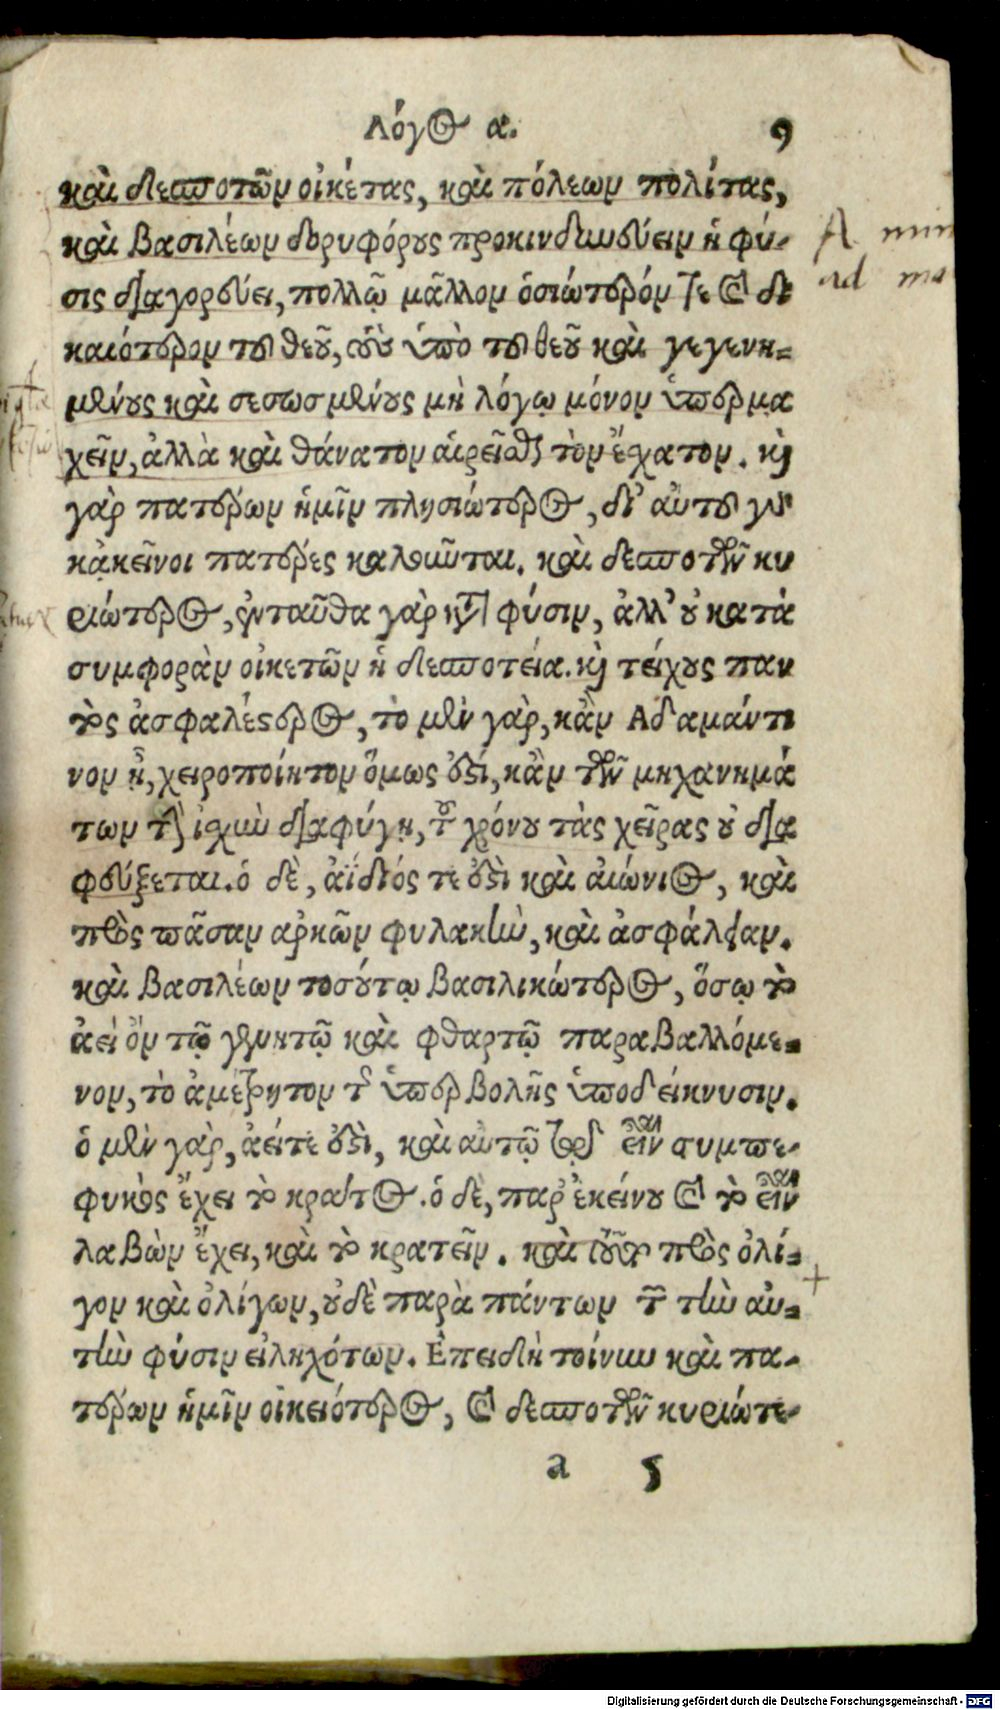 Λόγος α. 9
καὶ δεσποτῶν οἰκέτας, καὶ πόλεων πολίτας,
καὶ βασιλέων δορυφόρους προκινδυνεύειν ἡ φύ-
σις διαγορεύει, πολλῷ μᾶλλον ὁσιώτερόν τε καὶ δι
καιότερον τοῦ θεοῦ, τοὺς ὑπὸ τοῦ θεοῦ καὶ γεγενη-
μένους καὶ σεσωσμένους μὴ λόγῳ μόνον ὑπερμα
χεῖν, ἀλλὰ καὶ θάνατον αἱρεῖσθαι τὸν ἔσχατον. καὶ
γὰρ πατέρων ἡμῖν πλησιώτερος, δι' αὐτοῦ γὰρ
κἀκεῖνοι πατέρες καλοῦνται. καὶ δεσποτῶν κυ
ριώτερος, ἐνταῦθα γὰρ κατὰ φύσιν, ἀλλ' οὐ κατὰ
συμφορὰν οἰκετῶν ἡ δεσποτεία. καὶ τείχους παν
τὸς ἀσφαλέστερος, τὸ μὲν γὰρ, κἂν Ἀδαμάντι
νον ᾖ, χειροποίητον ὅμως ἐστί, κἂν τῶν μηχανημά
των τὴν ἰσχὺν διαφύγῃ, τοῦ χρόνου τὰς χεῖρας οὐ δια
φεύξεται. ὁ δὲ, ἀΐδιός τε ἐστὶ καὶ αἰώνιος, καὶ
πρὸς πᾶσαν ἀρκῶν φυλακὴν, καὶ ἀσφάλειαν.
καὶ βασιλέων τοσούτῳ βασιλικώτερος, ὅσῳ τὸ
ἀεὶ ὂν τῷ γεννητῷ καὶ φθαρτῷ παραβαλλόμε-
νον, τὸ ἀμέτρητον τῆς ὑπερβολῆς ὑποδείκνυσιν.
ὁ μὲν γὰρ, ἀεί τε ἐστὶ, καὶ αὐτῷ πρὸς εἶναι συμπε-
φυκὸς ἔχει τὸ κράτος. ὁ δὲ, παρ' ἐκείνου καὶ τὸ εἶναι
λαβὼν ἔχει, καὶ τὸ κρατεῖν. καὶ τοῦτο πρὸς ὀλί-
γον καὶ ὀλίγων, οὐδὲ παρὰ πάντων τῶν τὴν αὐ-
τὴν φύσιν εἰληχότων. Ἐπειδὴ τοίνυν καὶ πα-
τέρων ἡμῖν οἰκειότερος, καὶ δεσποτῶν κυριώτε-
a 5
A min
ad ma
Digitalisierung gefördert durch die Deutsche Forschungsgemeinschaft - DFG